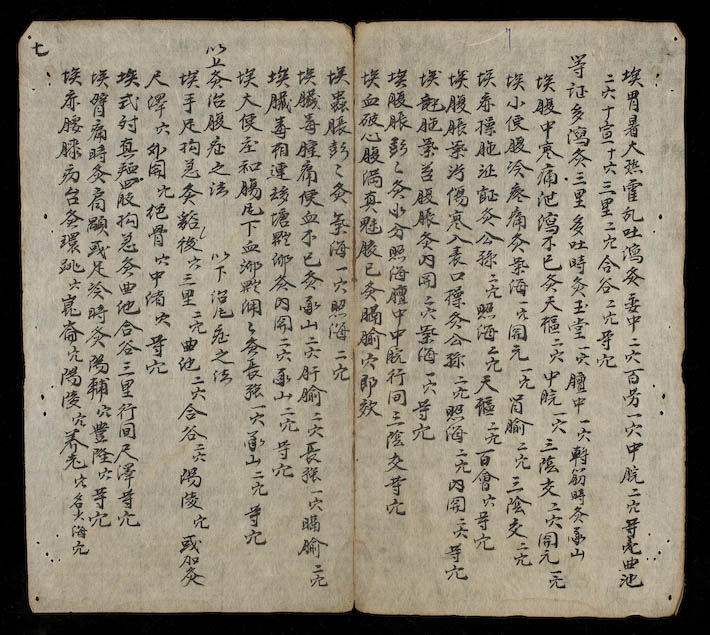 埃胃暑大热霍乱吐瀉灸委中二穴百劳一穴中脘二穴等壳曲池
二穴十宣十六三里二穴合谷二穴等穴
等证多瀉灸三里多吐時灸玉堂一穴膻中一穴轉筋時灸承山
埃腹中寒痛泄瀉不已灸天樞二穴中脘一穴三陰交二穴関元一穴
埃小便腹冷疼痛灸气海一穴関元一穴胃腧二穴三陰交二穴
埃赤操施证証灸公孫二穴照海二穴天樞二穴百會一穴等穴
埃腹脹气汋傷寒入表口操灸公孫二穴照海二穴内関二穴等穴
埃施气苔腹脹灸内関二穴气海一穴等穴
埃腹脹彭彭灸水分照海膻中中脘行间三陰交等穴
埃血破心腹满真脹已灸膈腧穴即效
埃蟲脹彭彭灸气海一穴照海二穴
埃臟毒腫痛便血不已灸承山二穴肝腧二穴長強一穴膈腧二穴
埃臟毒相連灸内関二穴承山二穴等穴
埃大便症和腸尾下血灸長強一穴承山二穴等穴
以上灸治腹症之法 以下治症之法
埃手足拘忌灸谿後穴三里二穴曲池二穴合谷二穴陽陵穴或加灸
尺澤穴外関穴绝骨穴中渚穴等穴
埃式対真四股拘忌灸曲池合谷三里行间尺澤等穴
埃臂痛時灸肩顒或足冷時灸陽輔穴豊隆穴等穴
埃赤腰膝病台灸環跳穴崑崙穴陽陵穴养老穴名大海穴
七